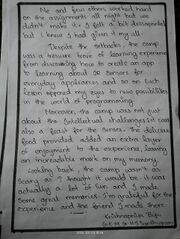 Me and few others worked hard
on the assignments all night but we
didn't make it. I felt a bit disappointed
but I knew I had given it my all.
Despite the setbacks, the camp
was a treasure trove of learning experience
from discovering how to create an app
to learning about IR sensors for
everyday appliances and so on. Each
lesson opened my eyes to new possibilities
in the world of programming.
Moreover, the camp was not just
about the intellectual challenges; it was
also a feast for the senses. The delicious
food provided added an extra layer
of enjoyment to the experience, leaving
an incredible mark on my memory.
Looking back, the camp wasn't as
scary as I thought it would be. it was
actually a lot of fun and I made
some great memories. I'm grateful for the
experience and the friend I made there.